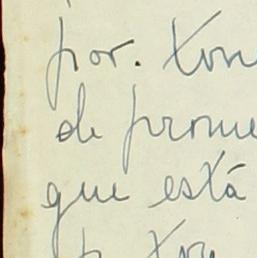 por. Ton
de prome
que está